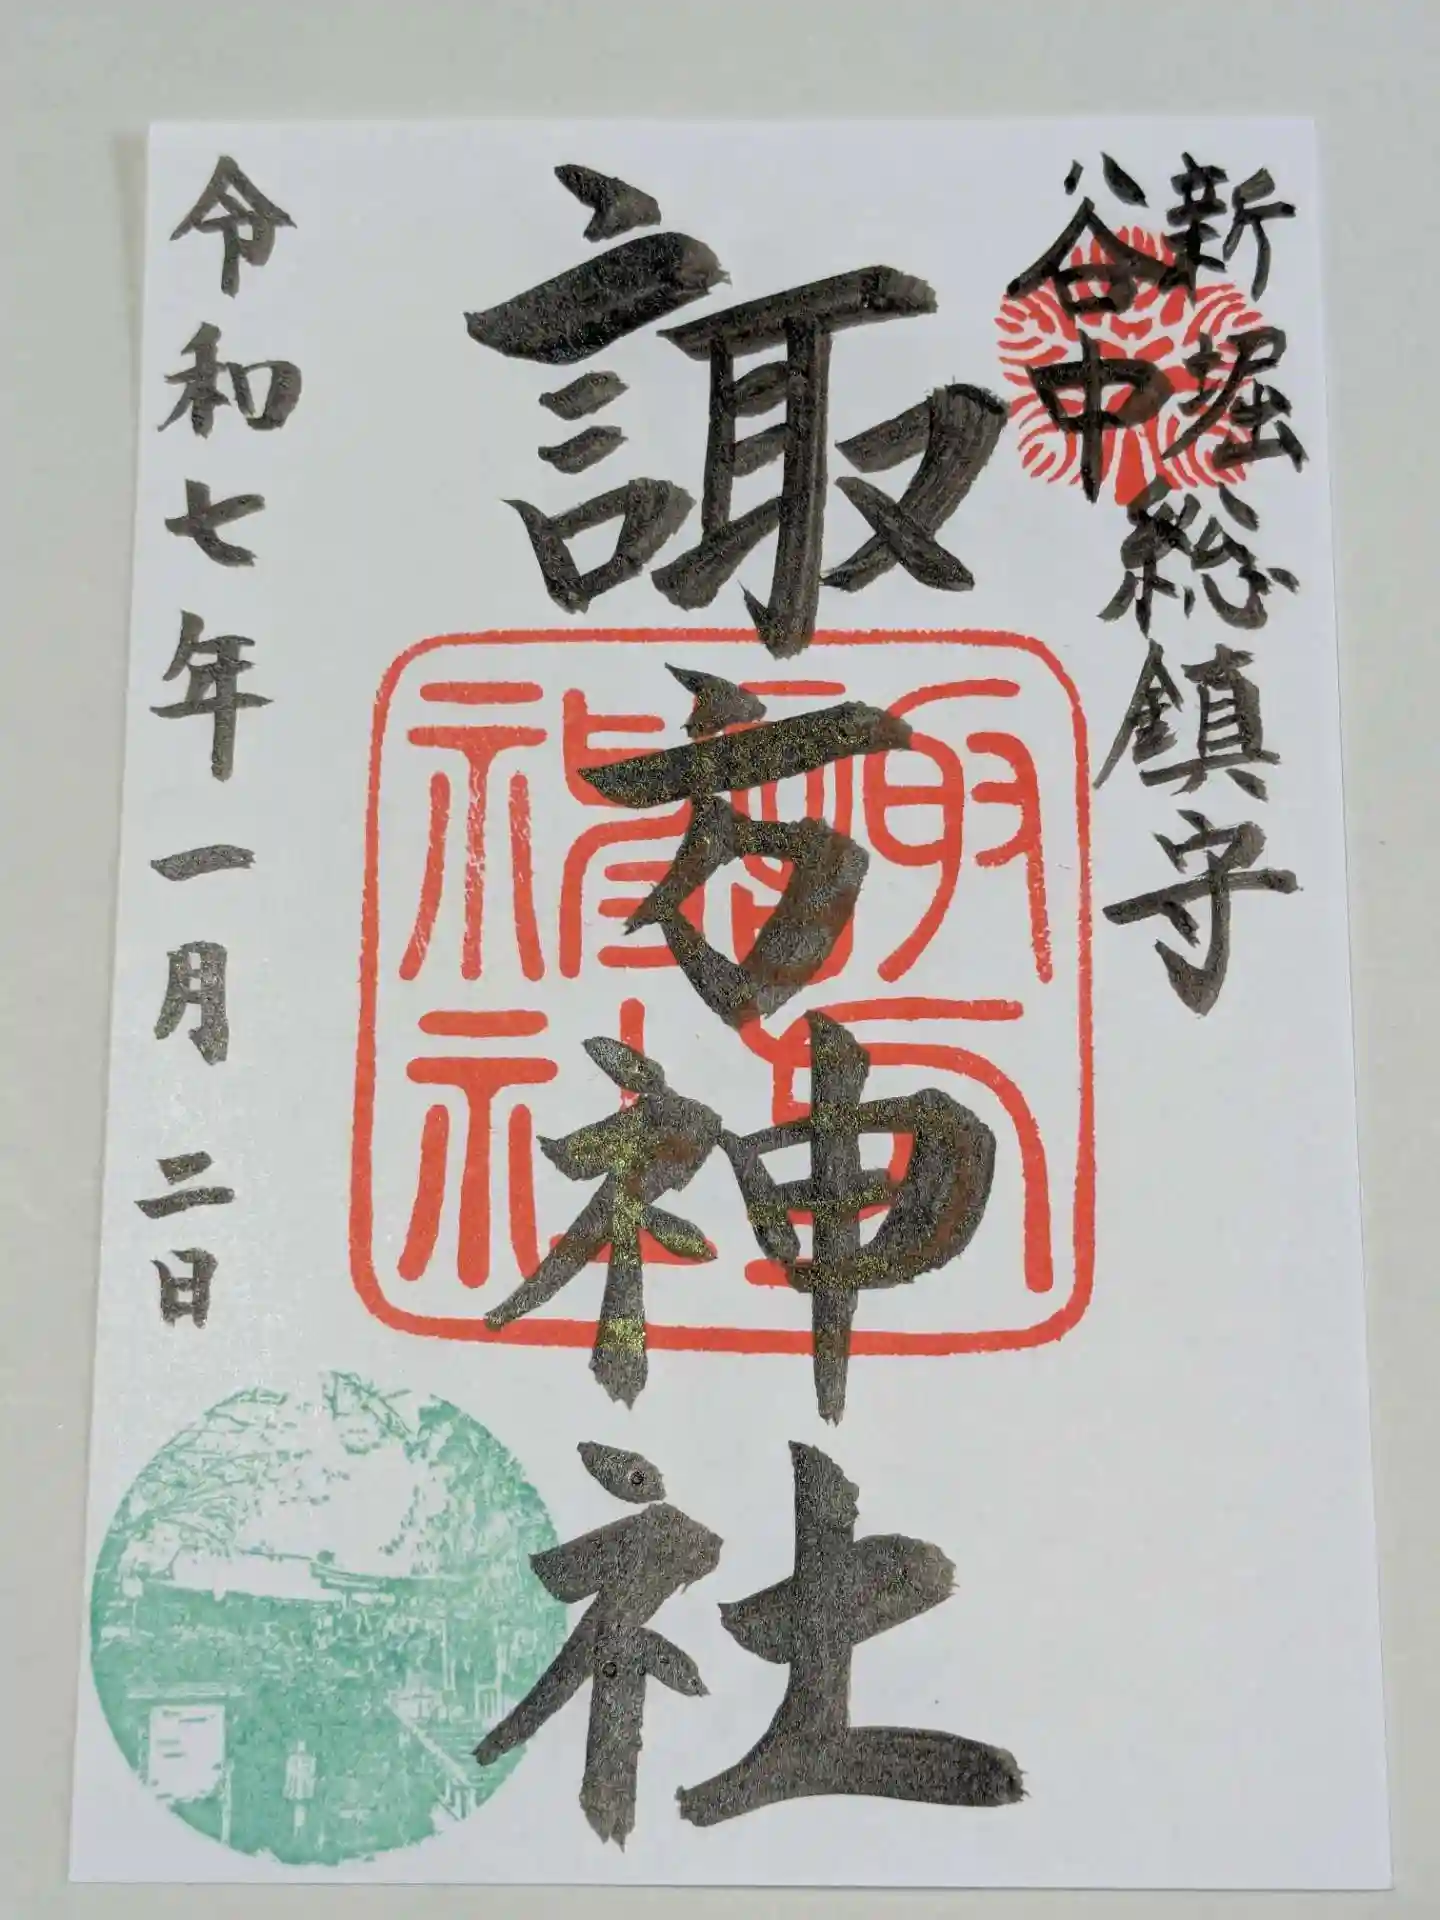 新堀
谷中
総鎮守
諏方神社
諏方神社
令和七年一月二日